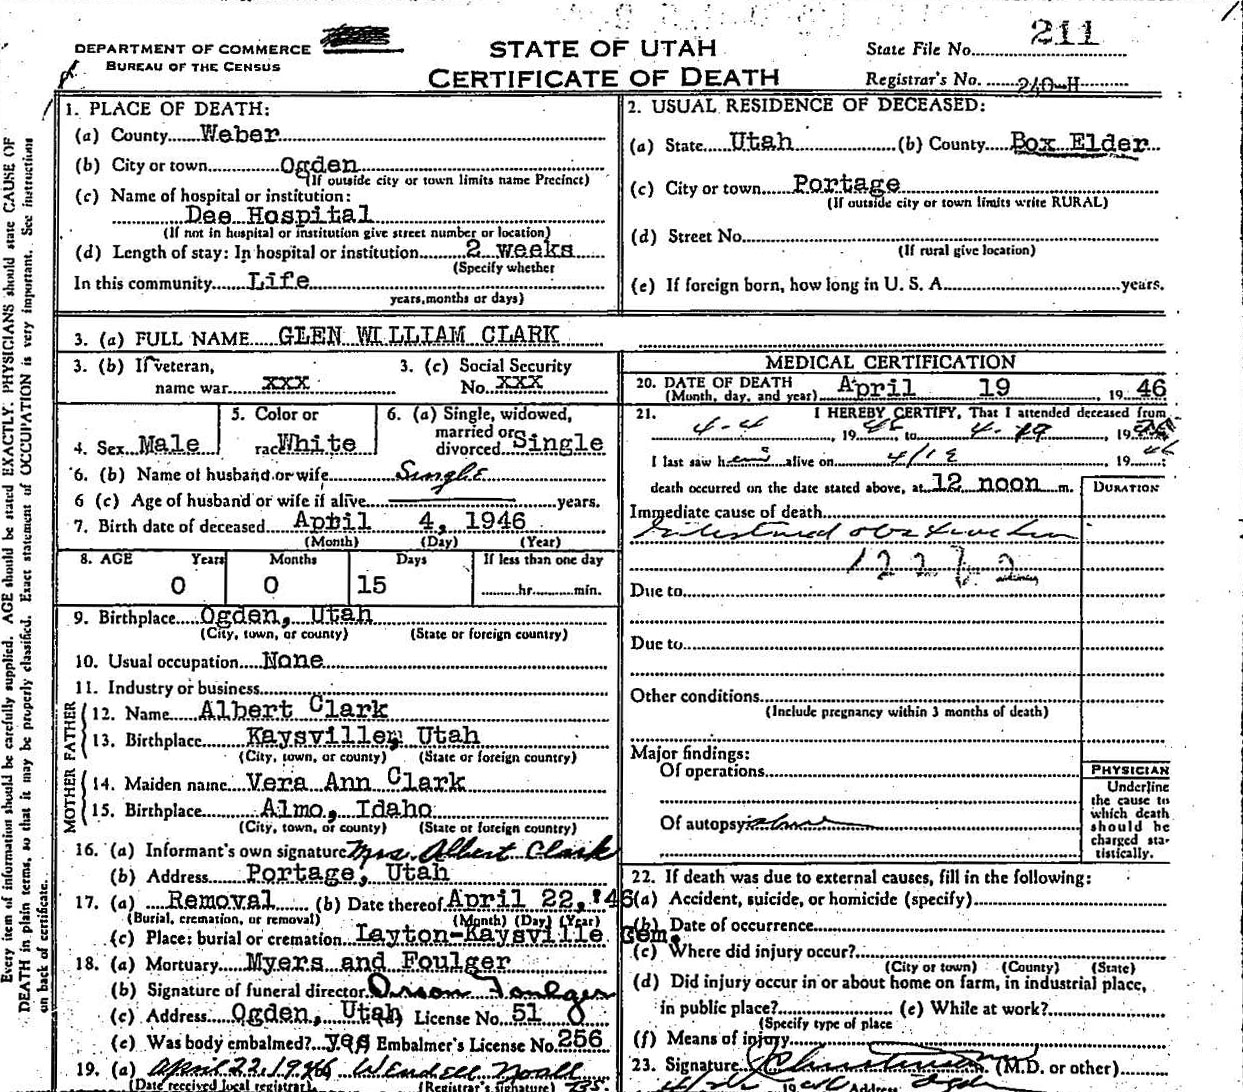 211
DEPARTMENT OF COMMERCE
BUREAU OF THE CENSUS
STATE OF UTAH
CERTIFICATE OF DEATH
State File No.
Registrar's No. 240-H
Every item of information should be carefully supplied. AGE should be stated EXACTLY. PHYSICIANS should state CAUSE OF
DEATH in plain terms, so that it may be properly classified. Exact statement of OCCUPATION is very important. See instructions
on back of certificate.
1. PLACE OF DEATH:
(a) County Weber
(b) City or town Ogden
(If outside city or town limits name Precinct)
(c) Name of hospital or institution:
Dee Hospital
(If not in hospital or institution give street number or location)
(d) Length of stay: In hospital or institution 2 weeks
(Specify whether
In this community Life
years, months or days)
2. USUAL RESIDENCE OF DECEASED:
(a) State Utah (b) County Box Elder
(c) City or town Portage
(If outside city or town limits write RURAL)
(d) Street No.
(If rural give location)
(e) If foreign born, how long in U. S. A. years.
3. (a) FULL NAME GLEN WILLIAM CLARK
3. (b) If veteran, name war xxx
3. (c) Social Security No. xxx
4. Sex Male
5. Color or race White
6. (a) Single, widowed, married or divorced Single
6. (b) Name of husband or wife Single
6 (c) Age of husband or wife if alive years.
7. Birth date of deceased April 4, 1946
(Month) (Day) (Year)
8. AGE Years Months Days If less than one day
0 0 15 hr. min.
9. Birthplace Ogden, Utah
(City, town, or county) (State or foreign country)
10. Usual occupation None
11. Industry or business
FATHER
12. Name Albert Clark
13. Birthplace Kaysville, Utah
(City, town, or county) (State or foreign country)
MOTHER
14. Maiden name Vera Ann Clark
15. Birthplace Almo, Idaho
(City, town, or county) (State or foreign country)
16. (a) Informant's own signature Mrs. Albert Clark
(b) Address Portage, Utah
17. (a) Removal (b) Date thereof April 22, '46
(Burial, cremation, or removal) (Month) (Day) (Year)
(c) Place: burial or cremation Layton-Kaysville Cem.
18. (a) Mortuary Myers and Foulger
(b) Signature of funeral director Orson Foulger
(c) Address Ogden, Utah (d) License No. 51
(e) Was body embalmed? yes Embalmer's License No. 256
19. (a) April 22, 1946 Wendell Noall
(Date received local registrar) (Registrar's signature)
MEDICAL CERTIFICATION
20. DATE OF DEATH April 19, 1946
(Month, day, and year)
21. I HEREBY CERTIFY, That I attended deceased from
4-4, 1946 to 4-19, 1946
I last saw him alive on 4/19 1946;
death occurred on the date stated above, at 12 noon m.
DURATION
Immediate cause of death
Intestinal obstruction
122
Due to
Due to
Other conditions
(Include pregnancy within 3 months of death)
Major findings:
Of operations
Of autopsy
PHYSICIAN
Underline
the cause to
which death
should be
charged sta-
tistically.
22. If death was due to external causes, fill in the following:
(a) Accident, suicide, or homicide (specify)
(b) Date of occurrence
(c) Where did injury occur?
(City or town) (County) (State)
(d) Did injury occur in or about home on farm, in industrial place,
in public place? (e) While at work?
(Specify type of place
(f) Means of injury
23. Signature (M.D. or other)
Address Ogden